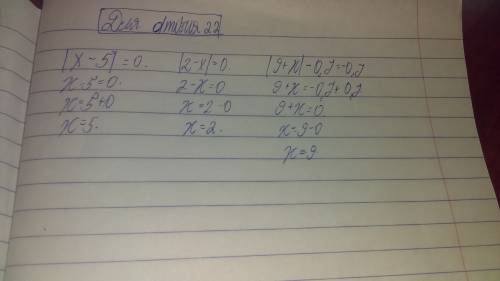 Для dmihun22
|x-5|=0. |2-x|=0 |9+x|-0,7=-0,7
x-5=0. 2-x=0 9+x=-0,7+0,7
x=5+0 x=2-0 9+x=0.
x=5. x=2. x=9-0
x=9